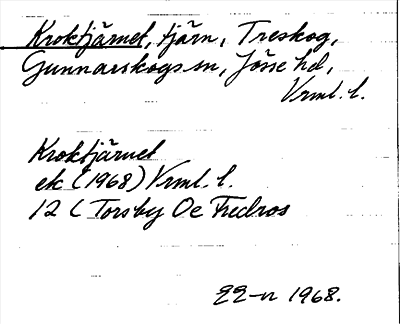 Kroktjärnet, tjärn, Treskog,
Gunnarskogs sn, Jösse hd,
Vrml. l.
Kroktjärnet
ek (1968) Vrml. l.
12 C Torsby Oe Fredros
1968.